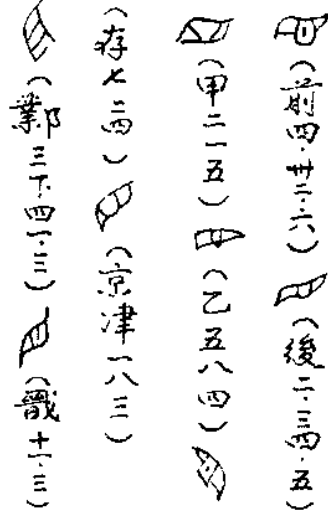 (前四·卅二·六) (後二·三四·五)
(甲二一五) (乙五八四)
(存七二四) (京津一八三)
(鄴三下·四一·三) (戩十一·三)